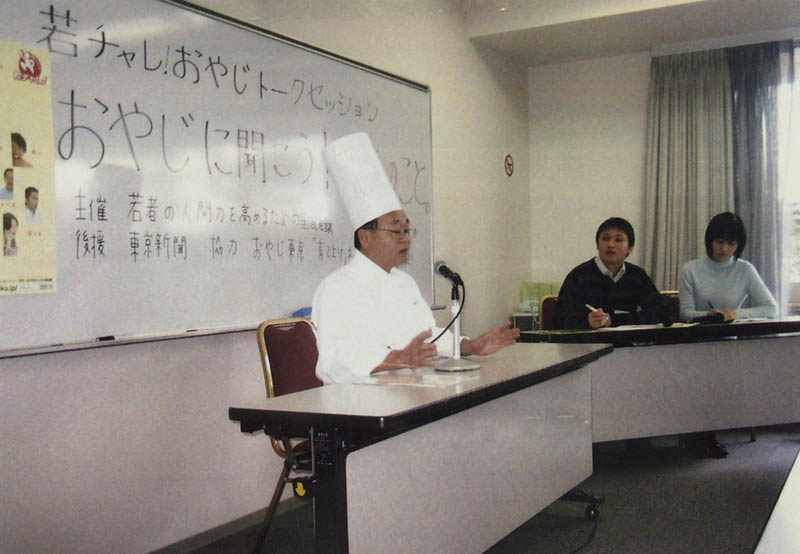 若チャレ!おやじトークセッション
おやじに聞こう! のこと。
主催 若者の人間力を高めるための国民会議
後援 東京新聞 協力 おやじ東京
ku.jp/